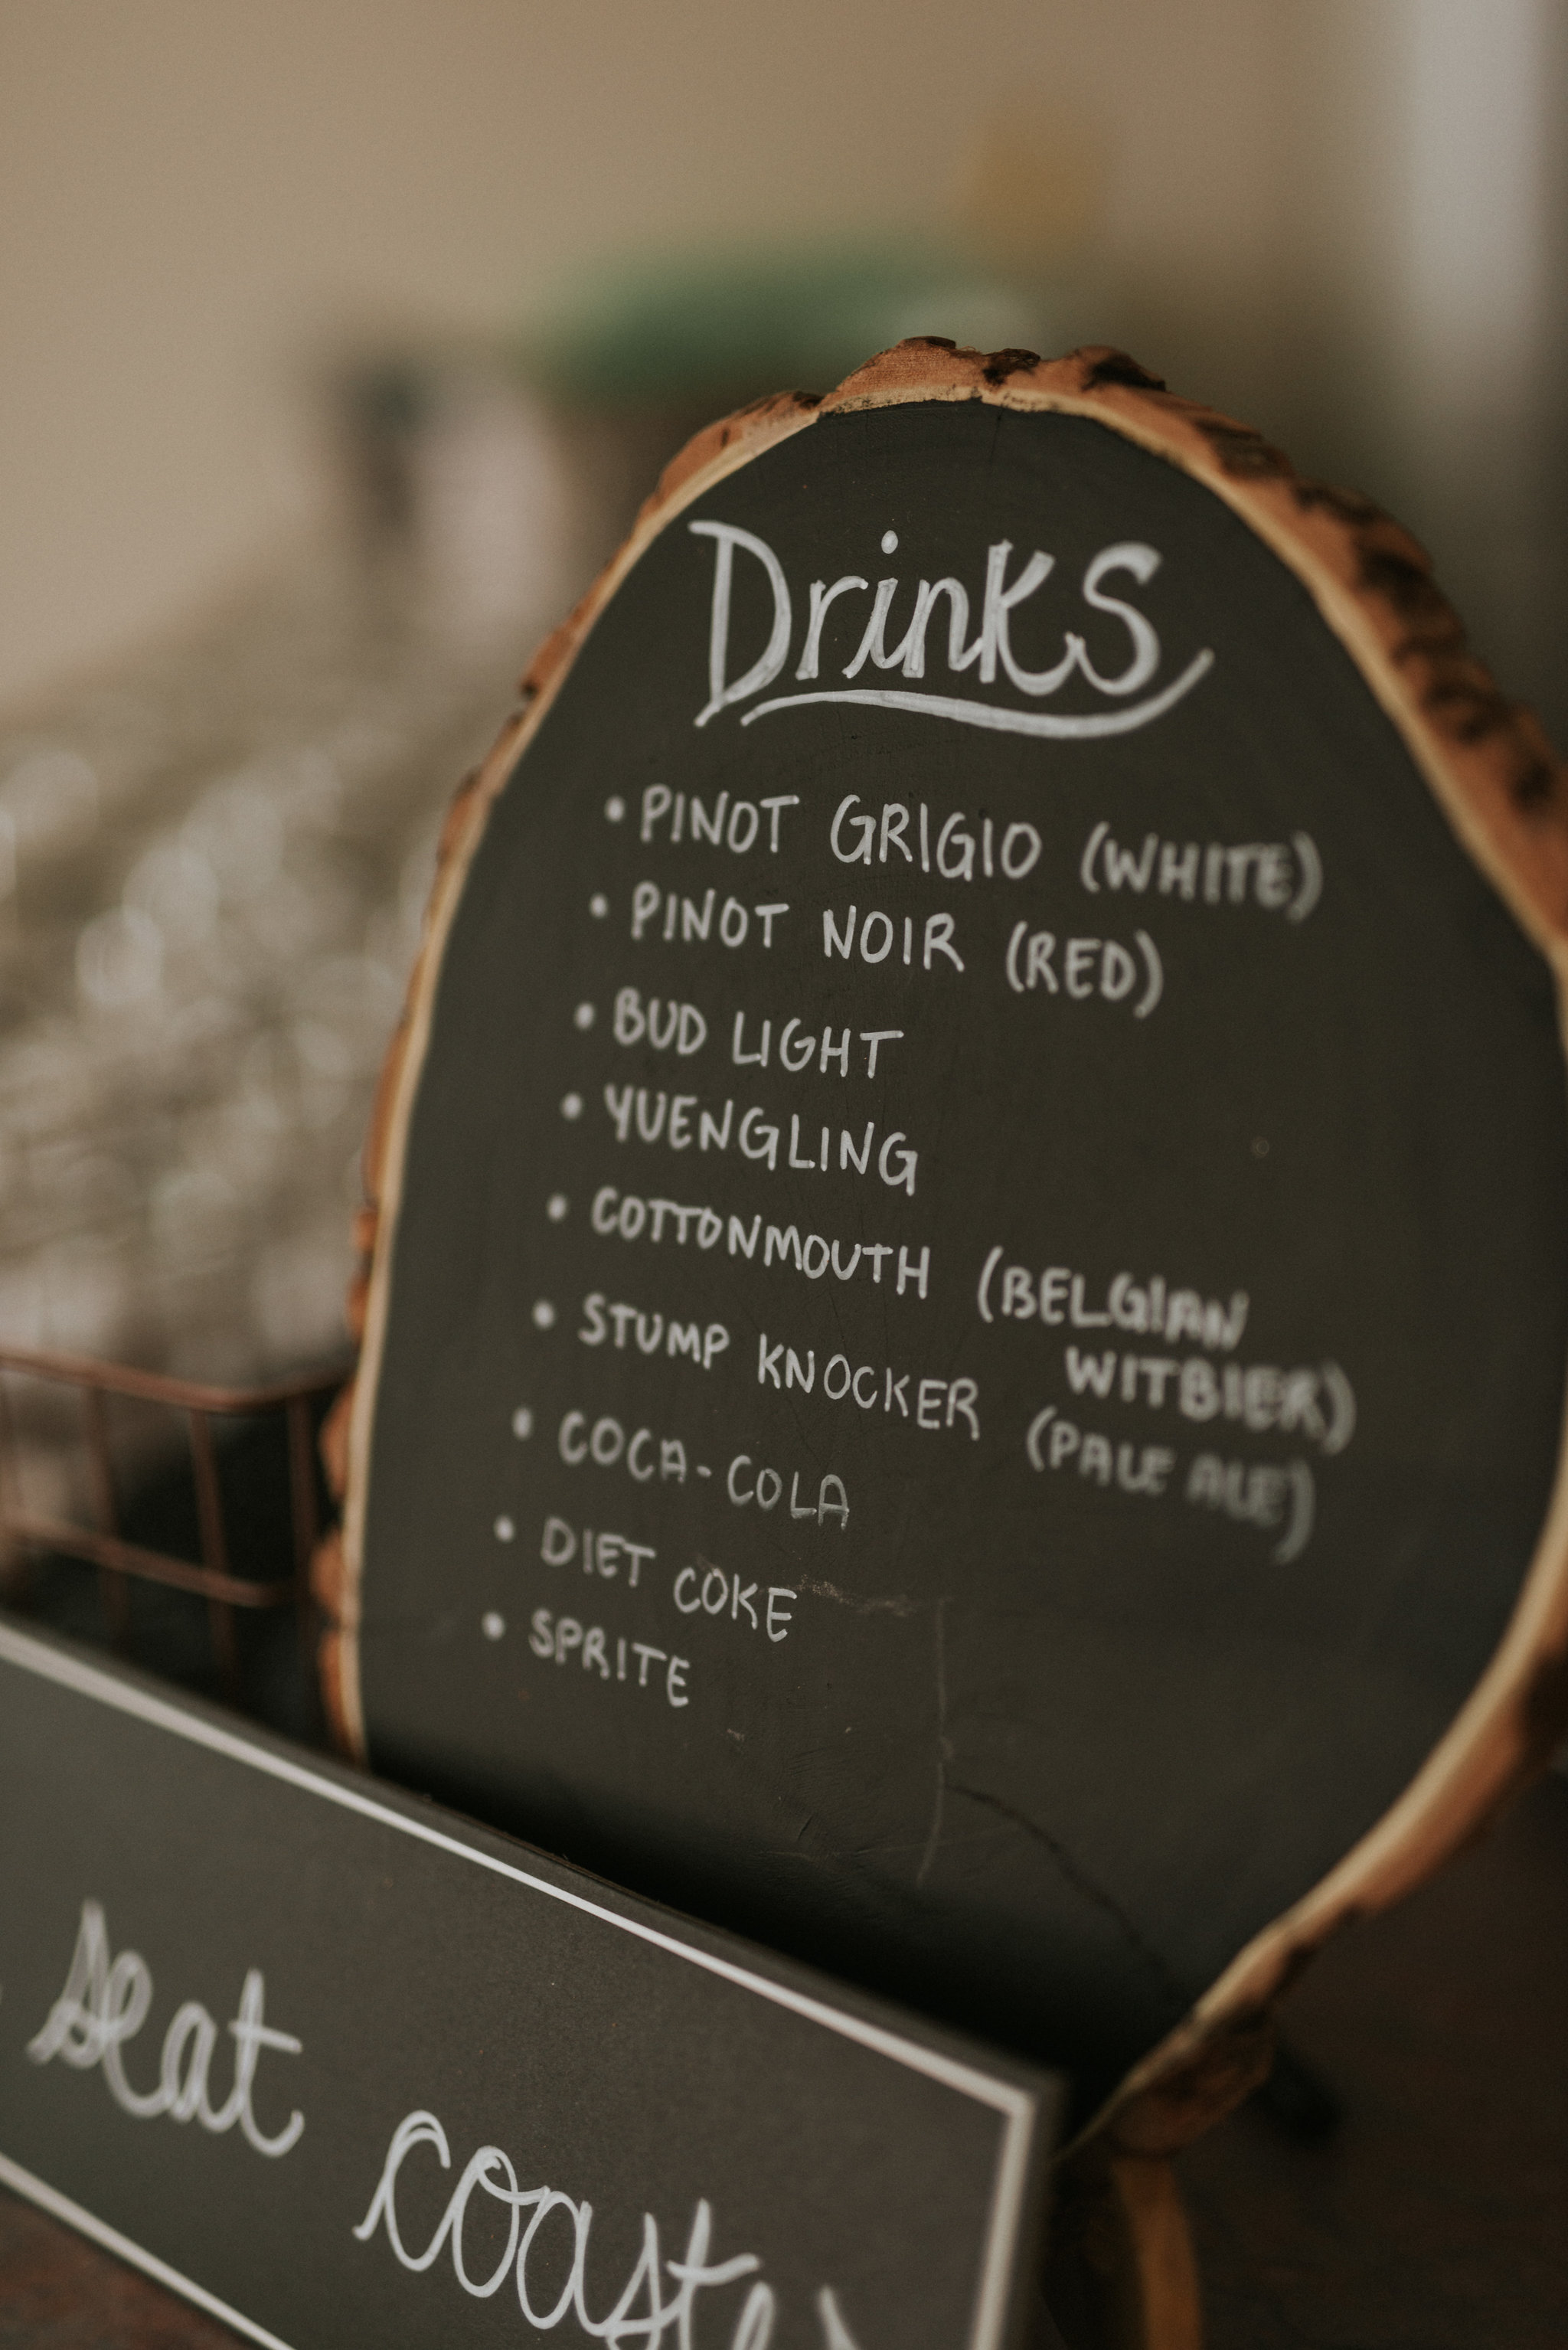 Drinks
• PINOT GRIGIO (WHITE)
• PINOT NOIR (RED)
• BUD LIGHT
• YUENGLING
• COTTONMOUTH (BELGIAN
WITBIER)
• STUMP KNOCKER (PALE ALE)
• COCA-COLA
• DIET COKE
• SPRITE
seat
coaster